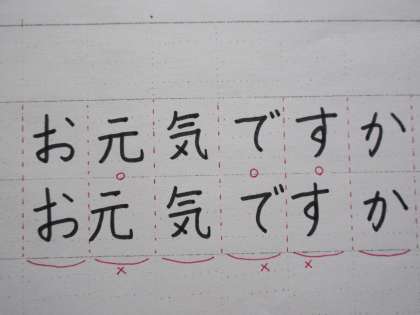 お元気ですか
お元気ですか